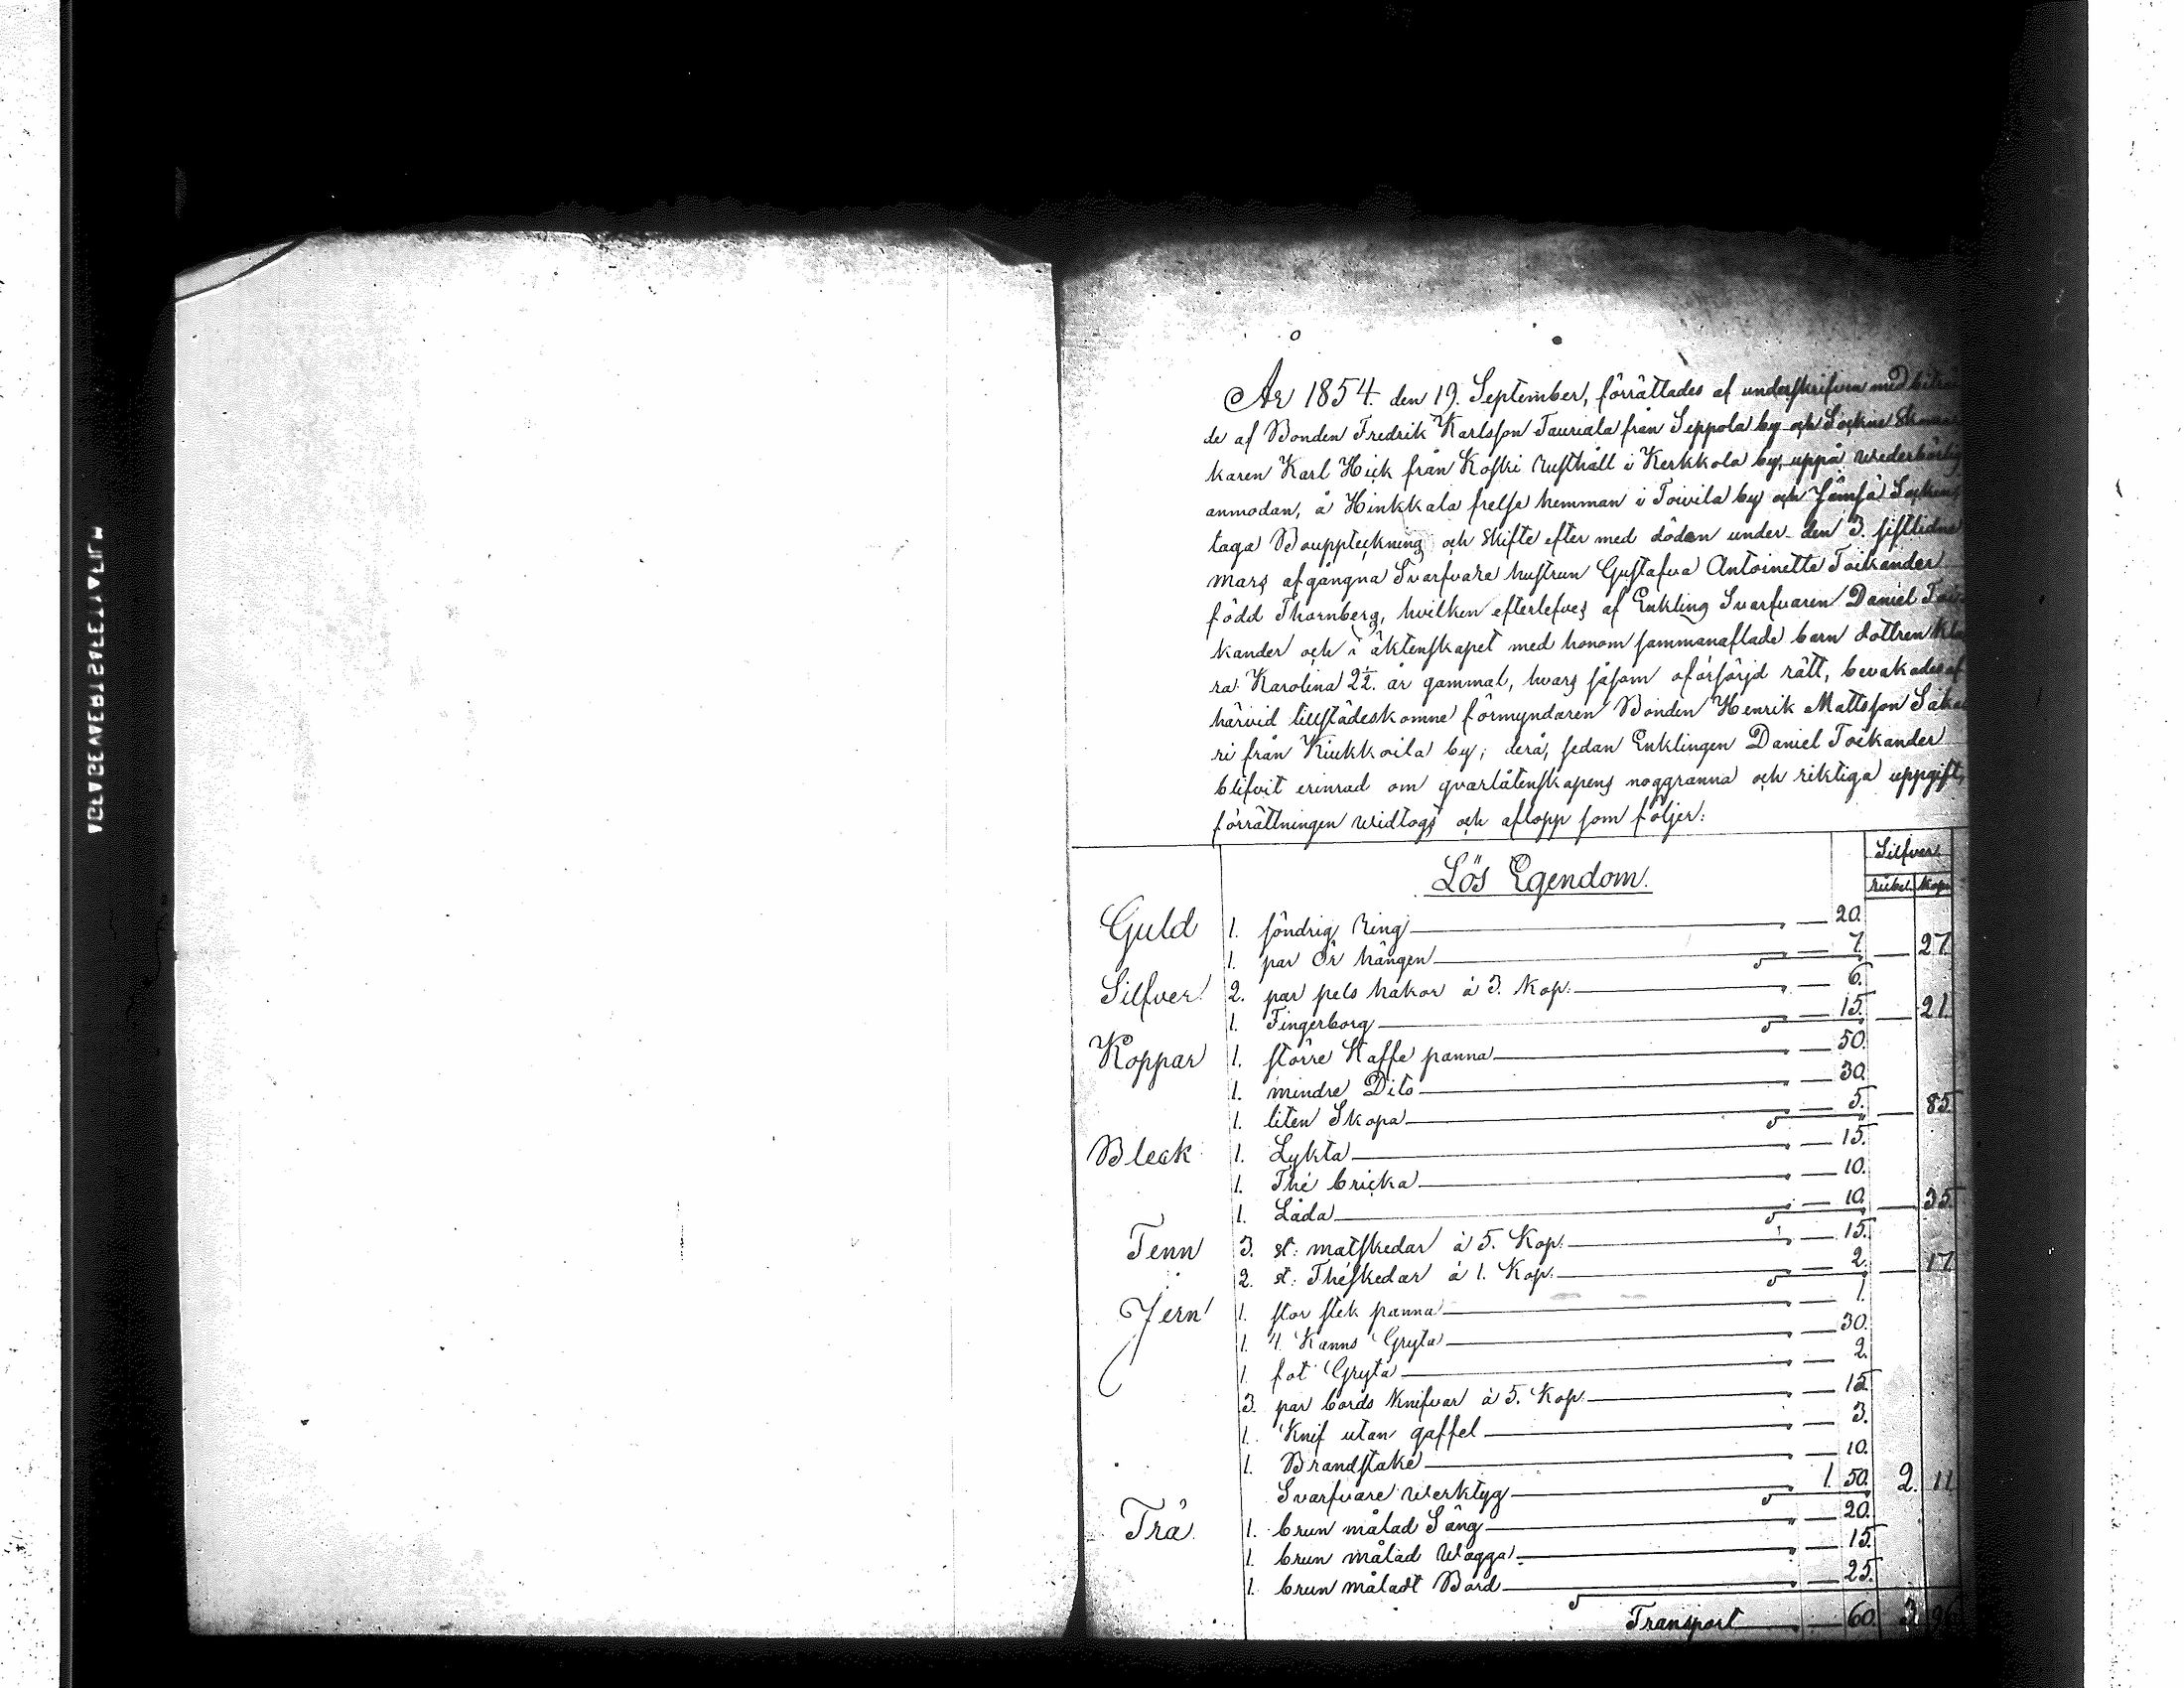 År 1854 den 19. September, förrättades af underskrifven med biträ
de af Bonden Fredrik Karlsson Tauriala från Seppola by och Sockne Skoma
karen Karl Hick från Koski rusthåll i Kerkkola by, uppå wederbörlig
anmodan, å Hinkkala frelse hemman i Toivila by och Jämsä Sockens
laga Bouppteckning och Skifte efter med döden under den 3. sistlidne
Mars afgångna Svarfvare hustrun Gustafva Antoinette Toikander
född Thornberg, hvilken efterlefves af Enkling Svarfvaren Daniel Toi
kander och i äktenskapet med honom sammanaflade barn dottren Kla
ra Karolina 2½ år gammal, hvars såsom oförsörjd rätt, bevakades af
härvid tillstädeskomne förmyndaren Bonden Henrik Mattsson Saka
ri från Kiukkoila by; derå, sedan Enklingen Daniel Toikander
blifvit erinrad om qvarlåtenskapens noggranna och riktiga uppgift,
förrättningen widtogs och aflopp som följer:
Lös Egendom. Silfver
Rubel Kop
Guld 1. söndrig Ring 20.
1. par Ör hängen 7. 27
Silfver 2. par pels hakor à 3. Kop: 6.
1. Fingerborg 15. 21.
Koppar 1. större Kaffe panna 50.
1. mindre Dito 30.
1. liten Skopa 5. 85
Bleck 1. Lykta 15.
1. Thé bricka 10.
1. Låda 10. 35
Tenn 3. st: matskedar à 5. Kop: 15.
2. st: Théskedar à 1. Kop: 2. 17
Jern 1. stor stek panna 1.
1. 4. Kanns Gryta 30.
1. fot Gryta 2.
3. par bords Knifvar à 5. Kop: 15
1. Knif utan gaffel 3.
1. Brandstake 10.
Svarfvare Werktyg 1. 50. 2. 11
Trä 1. brun målad Säng 20.
1. brun målad Wagga 15.
1. brun måladt Bord 25.
Transport 60. 3. 96